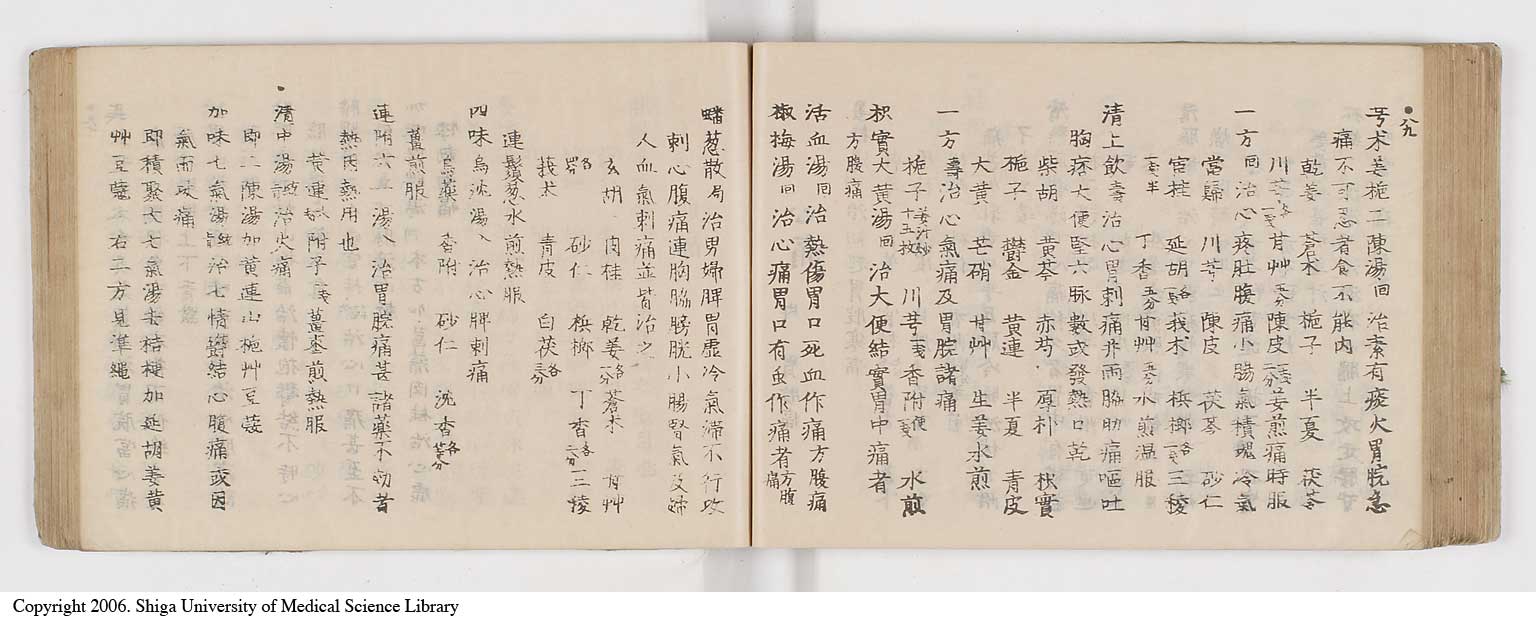 八九
芎朮姜梔二陳湯回 治素有痰火胃脘急
痛不可忍者食不能內 膓上
乾姜 蒼朮 梔子 半夏 茯苓
川芎各一戔甘艸五分陳皮一戔二分姜煎痛時服
一方回 治心疼肚腹痛小腸氣積塊冷氣
當歸 川芎 陳皮 茯苓 砂仁
官桂 延胡各一戔莪朮 梹榔各一戔三稜
一戔半 丁香五分甘艸五分水煎温服
清上飲壽治心胃刺痛并兩脇肋痛嘔吐
胸疼大便堅六脉數或發熱口乾
柴胡 黃芩 赤芍 厚朴 枳實
梔子 鬱金 黃連 半夏 青皮
大黃 芒硝 甘艸 生姜水煎
一方壽治心氣痛及胃脘諸痛
梔子姜汁炒十五枚 川芎一戔香附便一戔 水煎
枳實大黃湯回 治大便結實胃中痛者
方腹痛
活血湯回治熱傷胃口死血作痛方腹痛
椒梅湯回 治心痛胃口有虫作痛者方腹痛
蟠葱散局治男婦脾胃虛冷氣滯不行攻
刺心腹痛連胸脇膀胱小腸腎氣及婦
人血氣刺痛並皆治之
玄胡 肉桂 乾姜各二分蒼朮 甘艸
各 砂仁 梹榔 丁香各二分三稜
莪朮 青皮 白茯各三分
連鬚葱水煎熱服
四味烏沈湯〻 治心脾刺痛
烏藥 香附 砂仁 沈香各等分
薑煎服
連附六一湯〻治胃脘痛甚諸藥不効者
熱因熱用也
黃連六戔附子一戔薑棗煎熱服
清中湯 治火痛
即二陳湯加黃連山梔艸豆蔻
加味七氣湯 治七情鬱結心腹痛或因
氣而攻痛
即積聚大七氣湯去桔梗加延胡姜黃
艸豆蔻 右二方見準繩